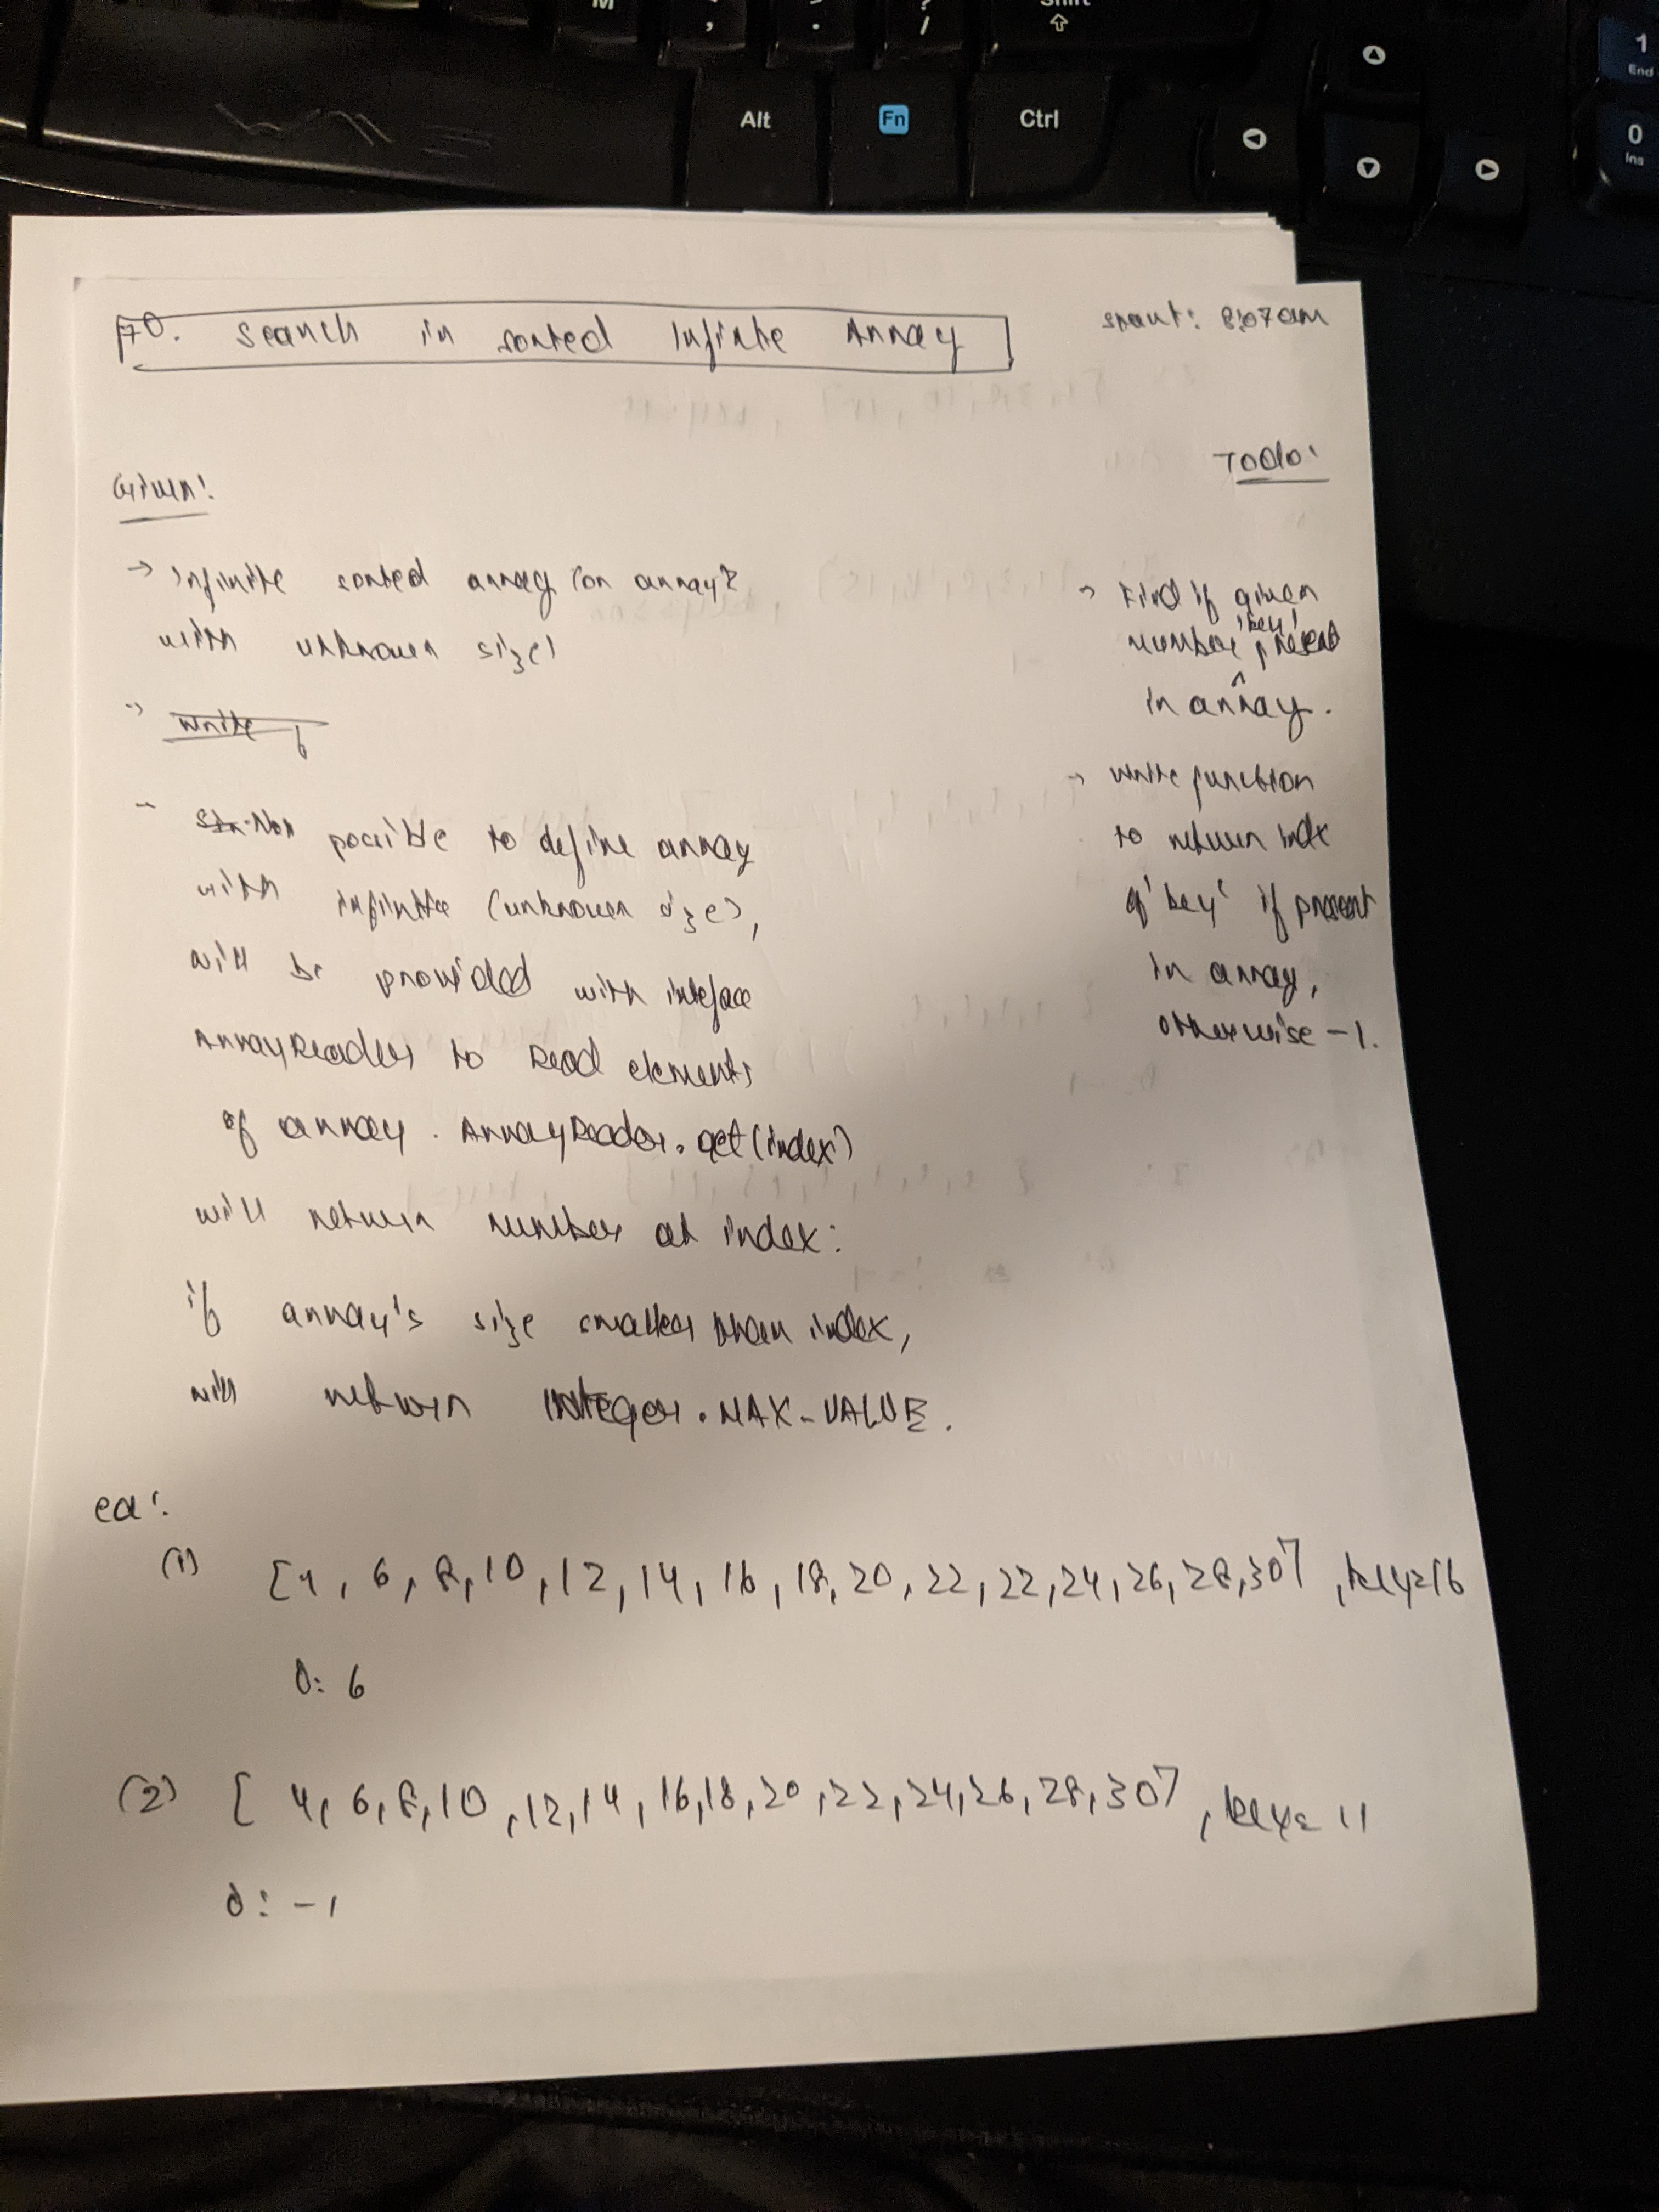 M , . ? / Shift
Alt Fn Ctrl
1 End
0 Ins
70. Search in sorted Infinite Array
start: 8:07am
Given:
→ Infinite sorted array (or array
with unknown size)
→ write f
→ Not possible to define array
with infinite (unknown size),
will be provided with inteface
ArrayReader to Read elements
of array. ArrayReader.get(index)
will return number at index:
if array's size smaller than index,
will return Integer.MAX_VALUE.
Todo:
→ Find if given
number 'key' present
in array.
→ write function
to return index
of 'key' if present
in array,
otherwise -1.
eg:
(1) [4, 6, 8, 10, 12, 14, 16, 18, 20, 22, 22, 24, 26, 28, 30], key=16
O: 6
(2) [4, 6, 8, 10, 12, 14, 16, 18, 20, 22, 24, 26, 28, 30], key= 11
O: -1